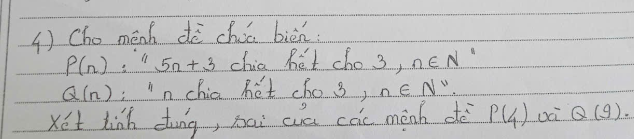 4) Cho mệnh đề chứa biến:
P(n): "5n+3 chia hết cho 3, n∈N"
Q(n): "n chia hết cho 3, n∈N".
Xét tính đúng, sai của các mệnh đề P(4) và Q(9).